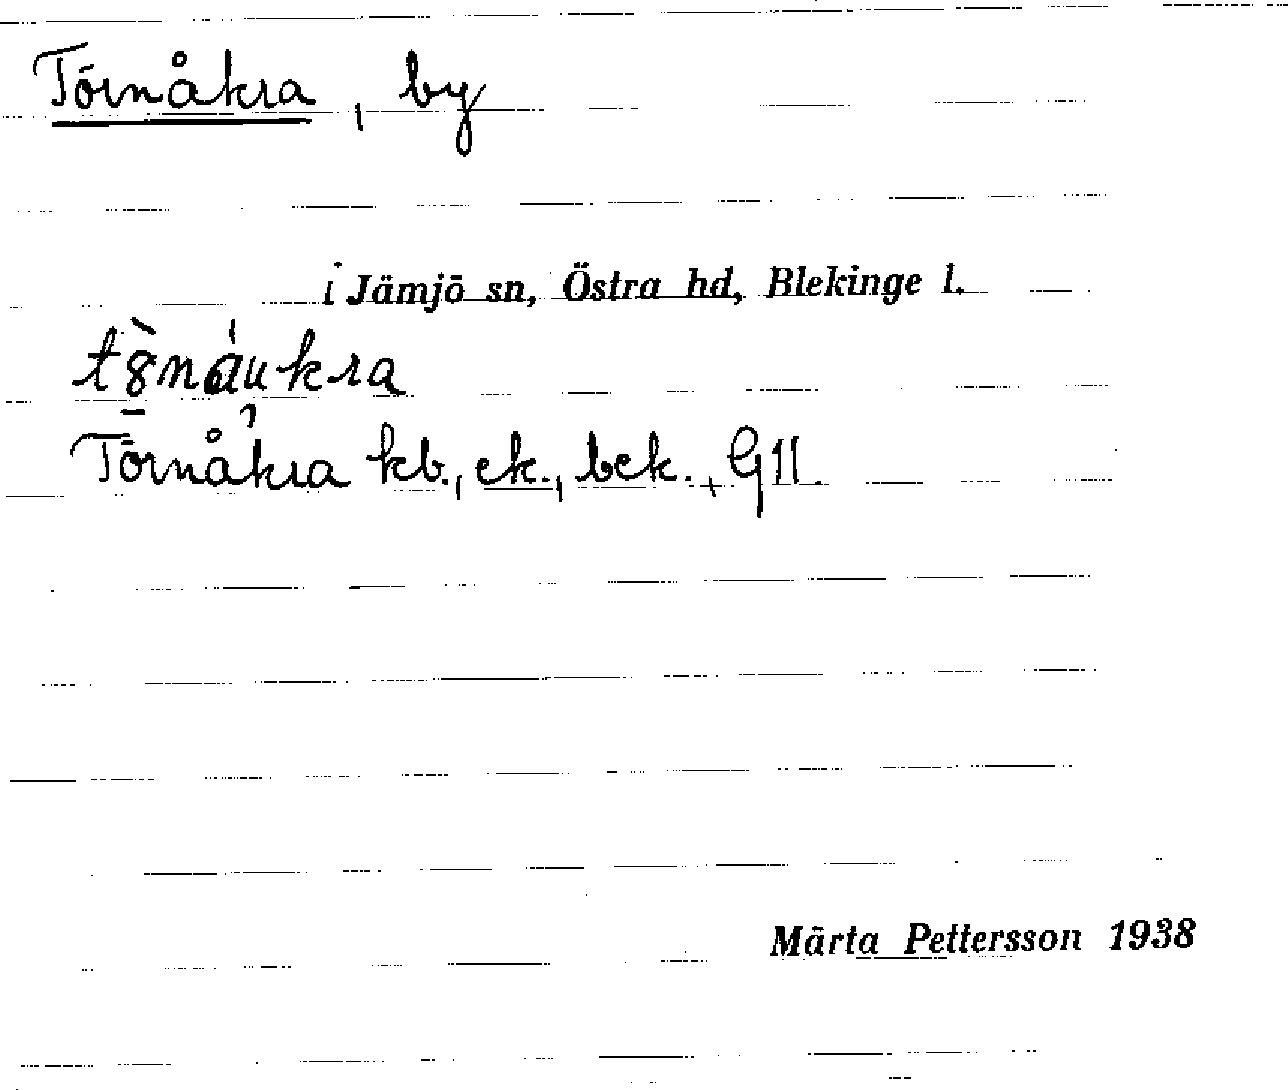 Törnåkra, by
i Jämjö sn, Östra hd, Blekinge l.
Törnåkra kb., ek., bek., GII.
Märta Pettersson 1938